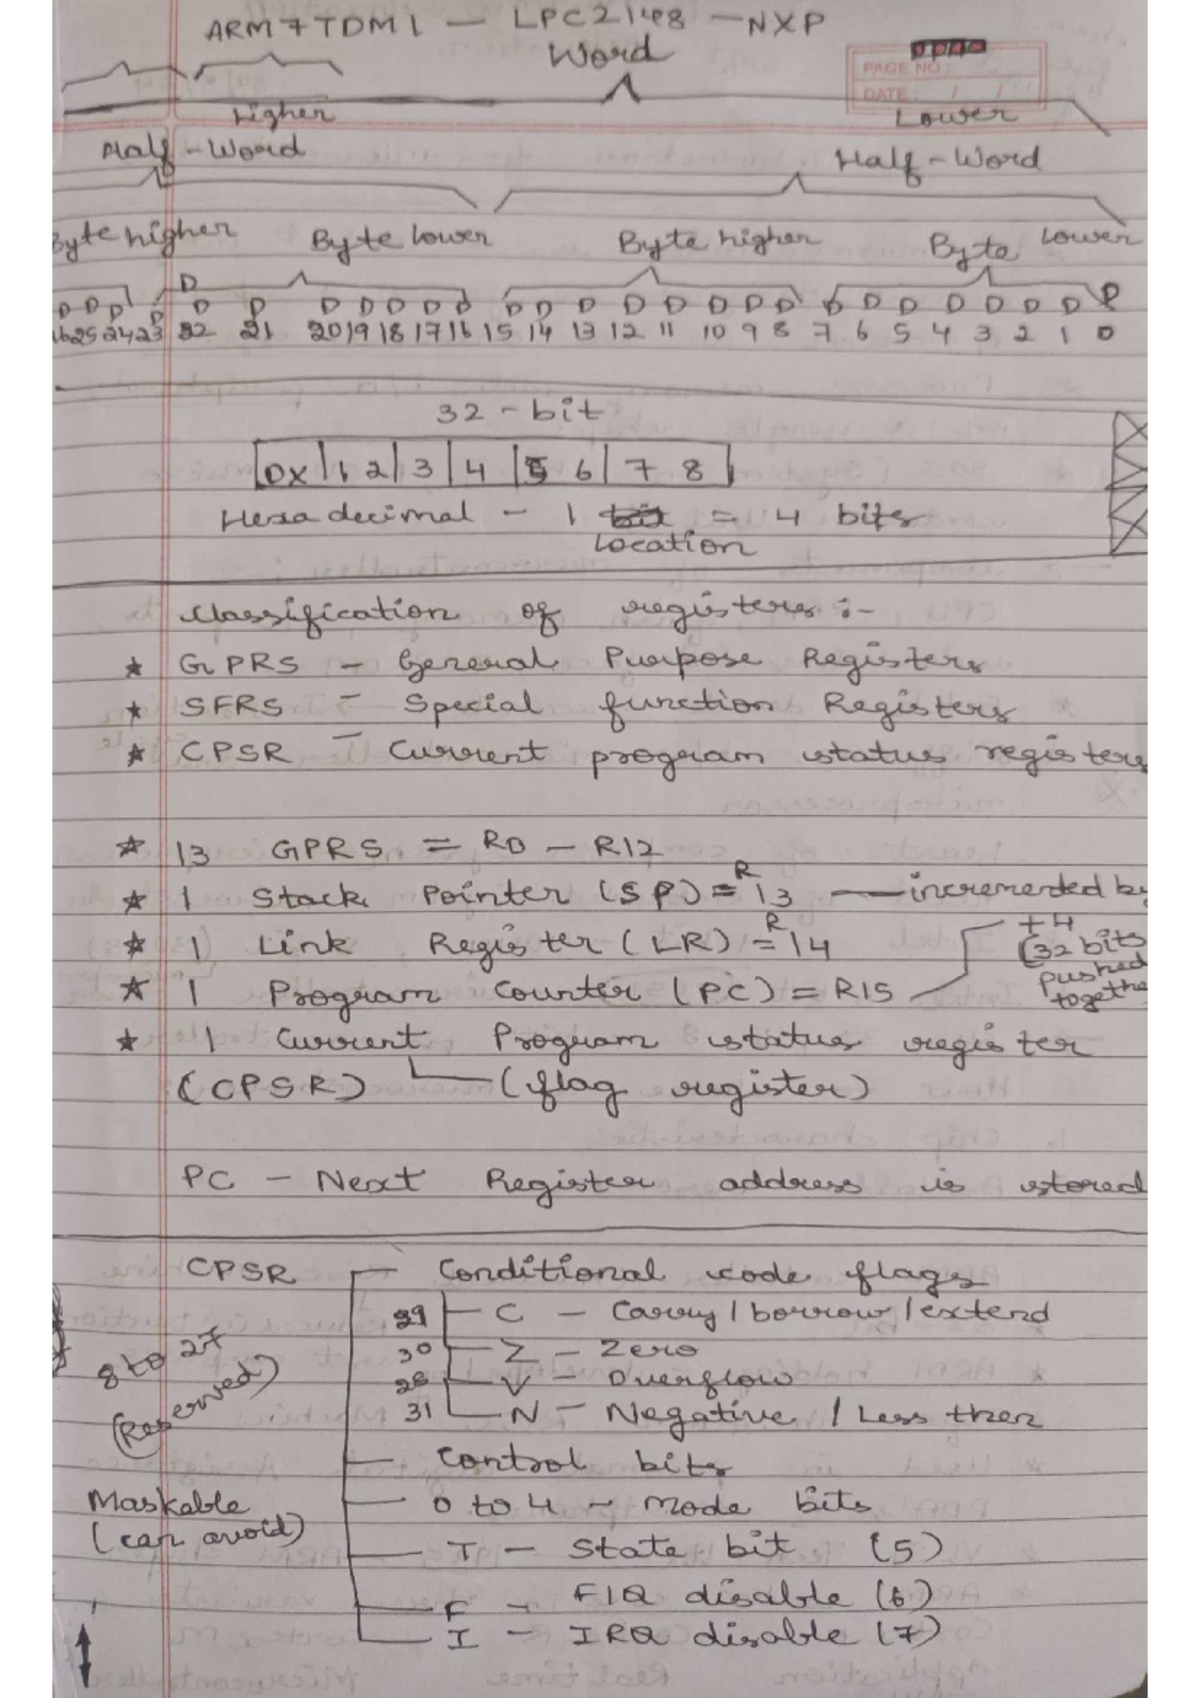 ARM7TDMI - LPC2148 - NXP
Word
PAGE NO:
DATE: / /
Higher
Lower
Half-Word
Half-Word
Byte higher
Byte lower
Byte higher
Byte lower
D
D D D D D D D D D D D D D D D D D D D D D D D D D D
25 24 23 22 21 20 19 18 17 16 15 14 13 12 11 10 9 8 7 6 5 4 3 2 1 0
32-bit
0X 1 2 3 4 5 6 7 8
Hexadecimal - 1 bit = 4 bits
location
Classification of registers :-
* GPRS - General Purpose Registers
* SFRS - Special function Registers
* CPSR - Current program status registers
* 13 GPRS = R0 - R12
* 1 Stack Pointer (SP) = R13 — incremented by
+4
* 1 Link Register (LR) = R14
(32 bits
pushed
* 1 Program Counter (PC) = R15
togethe
* 1 Current Program status register
(CPSR) (flag register)
PC - Next Register address is stored
CPSR - Conditional code flags
29 - C - Carry/borrow/extend
8 to 27
30 - Z - Zero
(Reserved)
28 - V - Overflow
31 - N - Negative / Less then
- Control bits
Maskable
- 0 to 4 - Mode bits
(can avoid)
- T - State bit (5)
F - FIQ disable (6)
- I - IRQ disable (7)